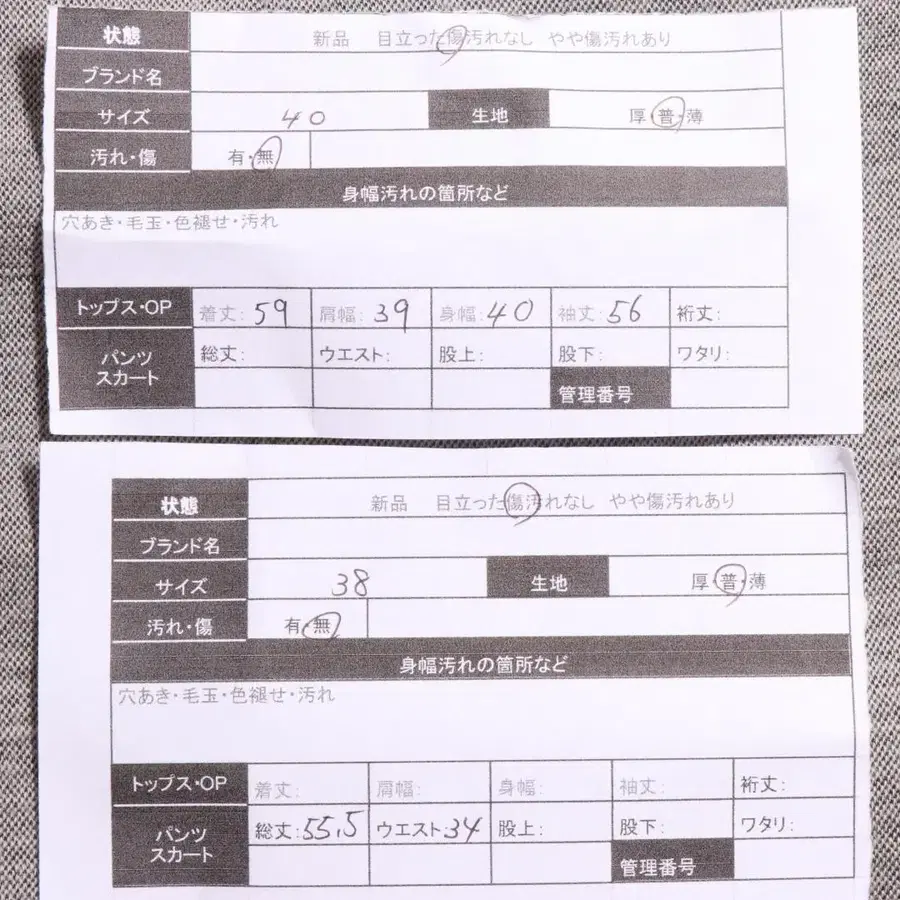 状態 新品 目立った傷汚れなし やや傷汚れあり
ブランド名
サイズ 40 生地 厚・普・薄
汚れ・傷 有・無
身幅汚れの箇所など
穴あき・毛玉・色褪せ・汚れ
トップス・OP 着丈:59 肩幅:39 身幅:40 袖丈:56 裄丈:
パンツ スカート 総丈: ウエスト: 股上: 股下: ワタリ:
管理番号
状態 新品 目立った傷汚れなし やや傷汚れあり
ブランド名
サイズ 38 生地 厚・普・薄
汚れ・傷 有・無
身幅汚れの箇所など
穴あき・毛玉・色褪せ・汚れ
トップス・OP 着丈: 肩幅: 身幅: 袖丈: 裄丈:
パンツ スカート 総丈:55.5 ウエスト:34 股上: 股下: ワタリ:
管理番号